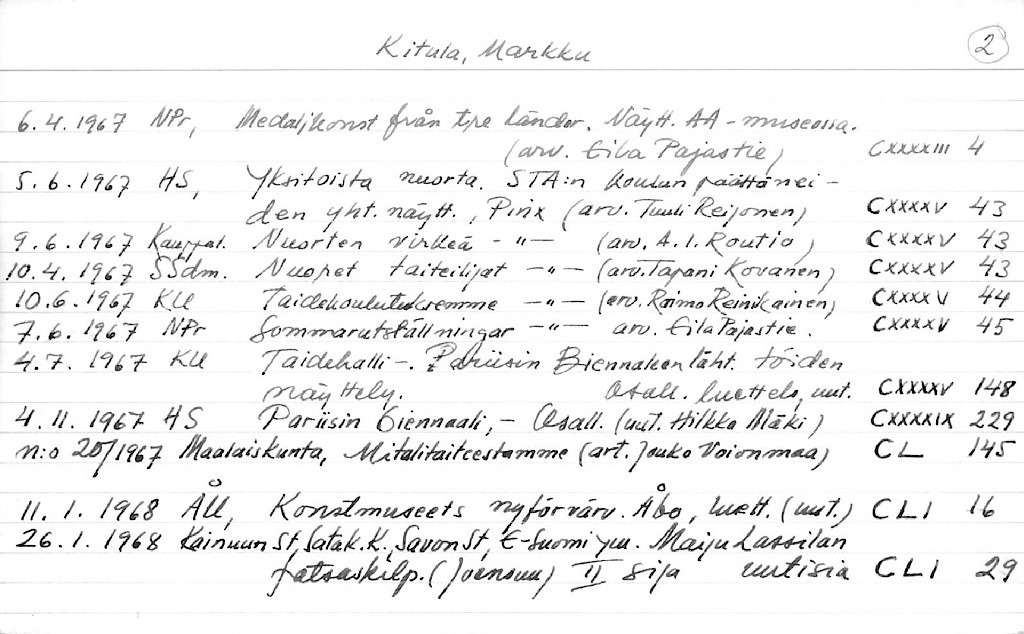 Kitula, Markku 2
6.4.1967 NPr, Medaljkonst från tre länder. Näytt. AA-museossa.
(arv. Eila Pajastie) CXXXXIII 4
5.6.1967 HS, Yksitoista nuorta. STA:n koulun päättänei-
den yht. näytt., Pinx (arv. Tuuli Reijonen) CXXXXV 43
9.6.1967 Kauppal. Nuorten virkeä -"- (arv. A.I. Routio) CXXXXV 43
10.4.1967 SSdm. Nuoret taiteilijat -"- (arv. Tapani Kovanen) CXXXXV 43
10.6.1967 KU Taidekoulutuksemme -"- (arv. Raimo Reinikainen) CXXXXV 44
7.6.1967 NPr Sommarutställningar -"- arv. Eila Pajastie. CXXXXV 45
4.7.1967 KU Taidehalli-. Pariisin Biennaleen läht. töiden
näyttely. Osall. luettelo, uut. CXXXXV 148
4.11.1967 HS Pariisin Biennaali,- Osall. (uut. Hilkka Mäki) CXXXXIX 229
n:o 20/1967 Maalaiskunta, Mitalitaiteestamme (art. Jouko Voionmaa) CL 145
11.1.1968 ÅU, Konstmuseets nyförvärv. Åbo, luett. (uut.) CLI 16
26.1.1968 Kainuun St, Satak.K., Savon St, E-Suomi ym. Maiju Lassilan
patsaskilp. (Joensuu) II sija uutisia CLI 29